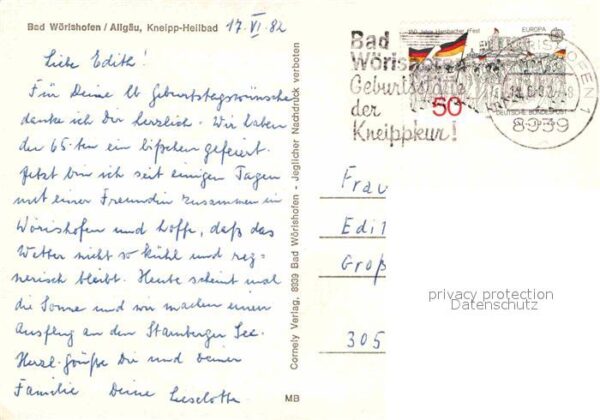 Bad Wörishofen / Allgäu, Kneipp-Heilbad
17.VI.82
Liebe Edith!
Für Deine lb Geburtstagswünsche
danke ich Dir herzlich. Wir haben
den 65-ten ein bißchen gefeiert.
Jetzt bin ich seit einigen Tagen
mit einer Freundin zusammen in
Wörishofen und hoffe, daß das
Wetter nicht so kühl und reg-
nerisch bleibt. Heute scheint mal
die Sonne und wir machen einen
Ausflug an den Starnberger See.
Herzl. Grüße Dir und Deiner
Familie Deine Lieselotte
Cornely Verlag, 8939 Bad Wörishofen - Jeglicher Nachdruck verboten
MB
Bad
Wörishofen
Geburtsstätte
der
Kneippkur!
150 Jahre Hambacher Fest
EUROPA
50
DEUTSCHE BUNDESPOST
8939
Frau
Edit
Groß
305
privacy protection
Datenschutz